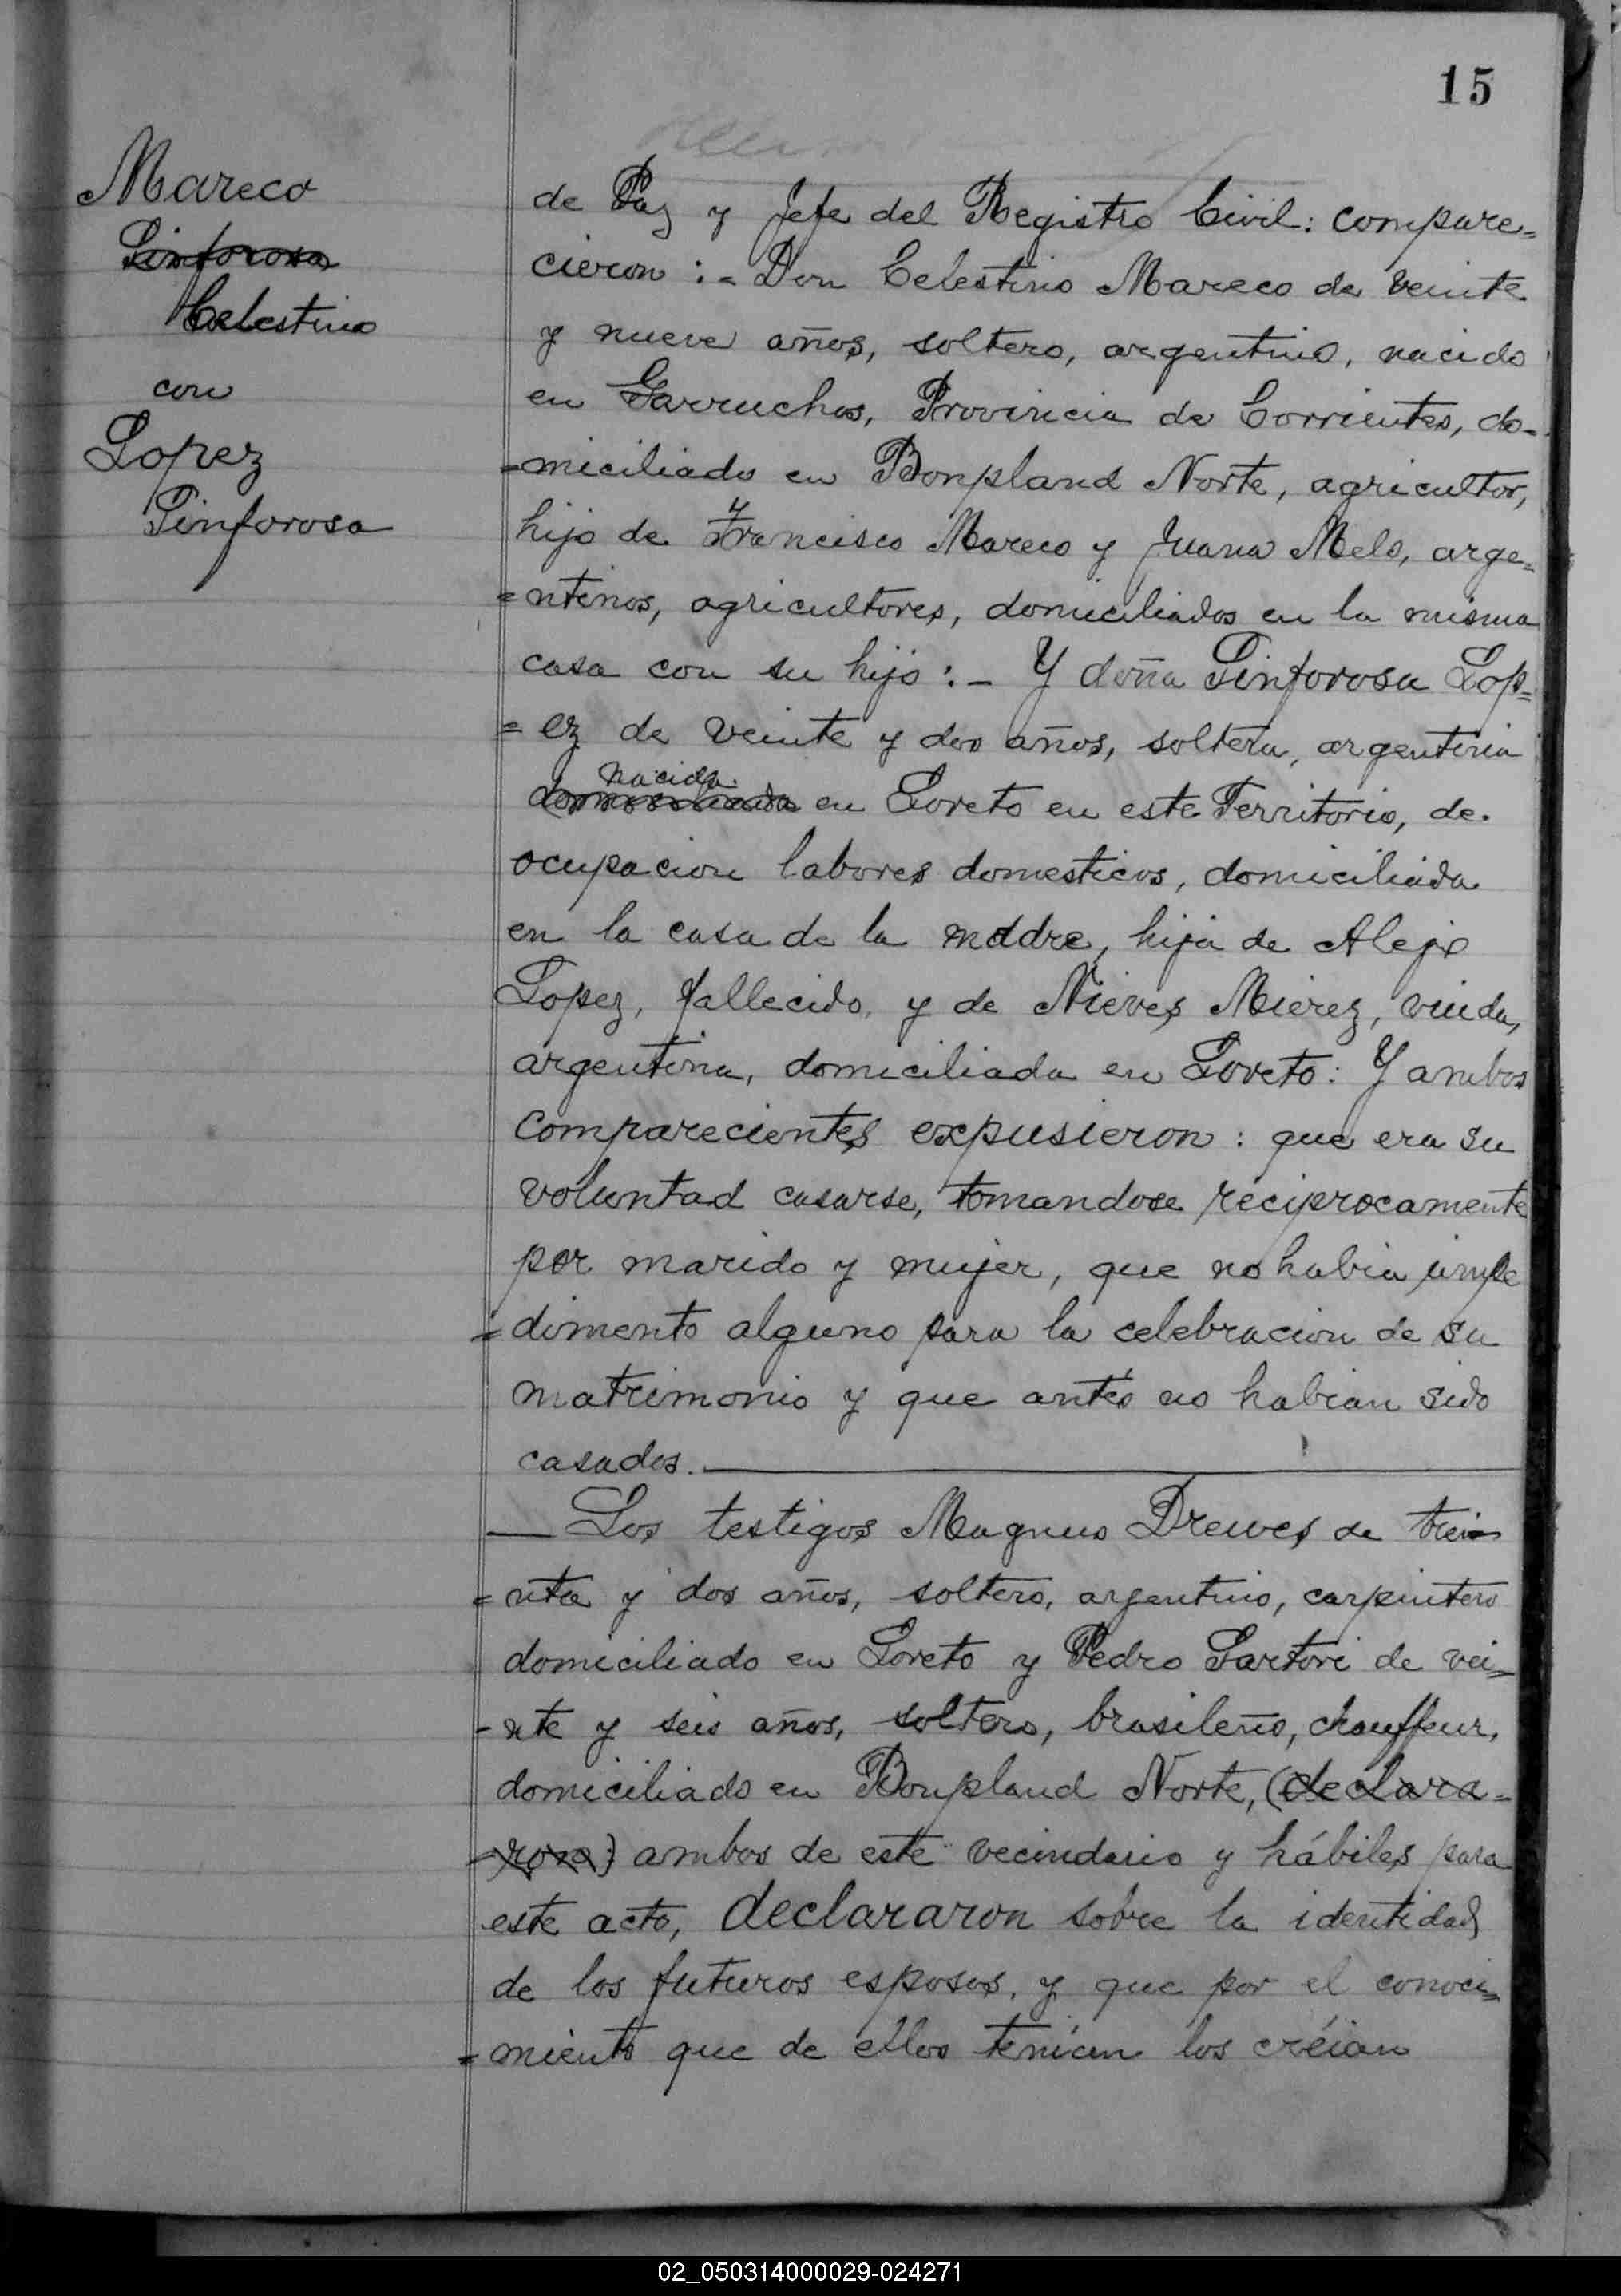 15
Mareco
Sinforosa
Celestino
con
Lopez
Sinforosa
de Paz y Jefe del Registro Civil: compare=
cieron :- Don Celestino Mareco de veinte
y nueve años, soltero, argentino, nacido
en Garruchos, Provincia de Corrientes, do-
-miciliado en Bonpland Norte, agricultor,
hijo de Francisco Mareco y Juana Melo, arge=
=ntinos, agricultores, domiciliados en la misma
casa con su hijo :- Y doña Sinforosa Lop=
=ez de veinte y dos años, soltera, argentina
nacida
domiciliada en Loreto en este Territorio, de
ocupacion labores domesticos, domiciliada
en la casa de la madre, hija de Alejo
Lopez, fallecido, y de Nieves Mierez, viuda,
argentina, domiciliada en Loreto: Y ambos
comparecientes expusieron: que era su
voluntad casarse, tomandose reciprocamente
por marido y mujer, que no habia impe
=dimento alguno para la celebracion de su
matrimonio y que antes no habian sido
casados.
— Los testigos Magnus Drewes de trei-
=nta y dos años, soltero, argentino, carpintero
domiciliado en Loreto y Pedro Sartori de vei=
-nte y seis años, soltero, brasileño, chauffeur,
domiciliado en Bonpland Norte, (declara=
-ron) ambos de este vecindario y hábiles para
este acto, declararon sobre la identidad
de los futuros esposos, y que por el conoci=
=miento que de ellos tenían los créian
02_050314000029-024271